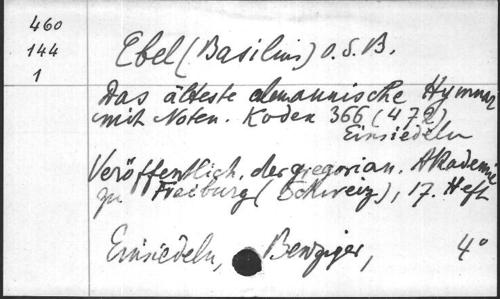 460
144
1
Ebel (Basilius) O.S.B.
Das älteste alemannische Hymnar
mit Noten. Kodex 366 (472)
Einsiedeln
Veröffentlich. der gregorian. Akademie
zu Freiburg (Schweiz), 17. Heft
Einsiedeln, Benziger, 4°